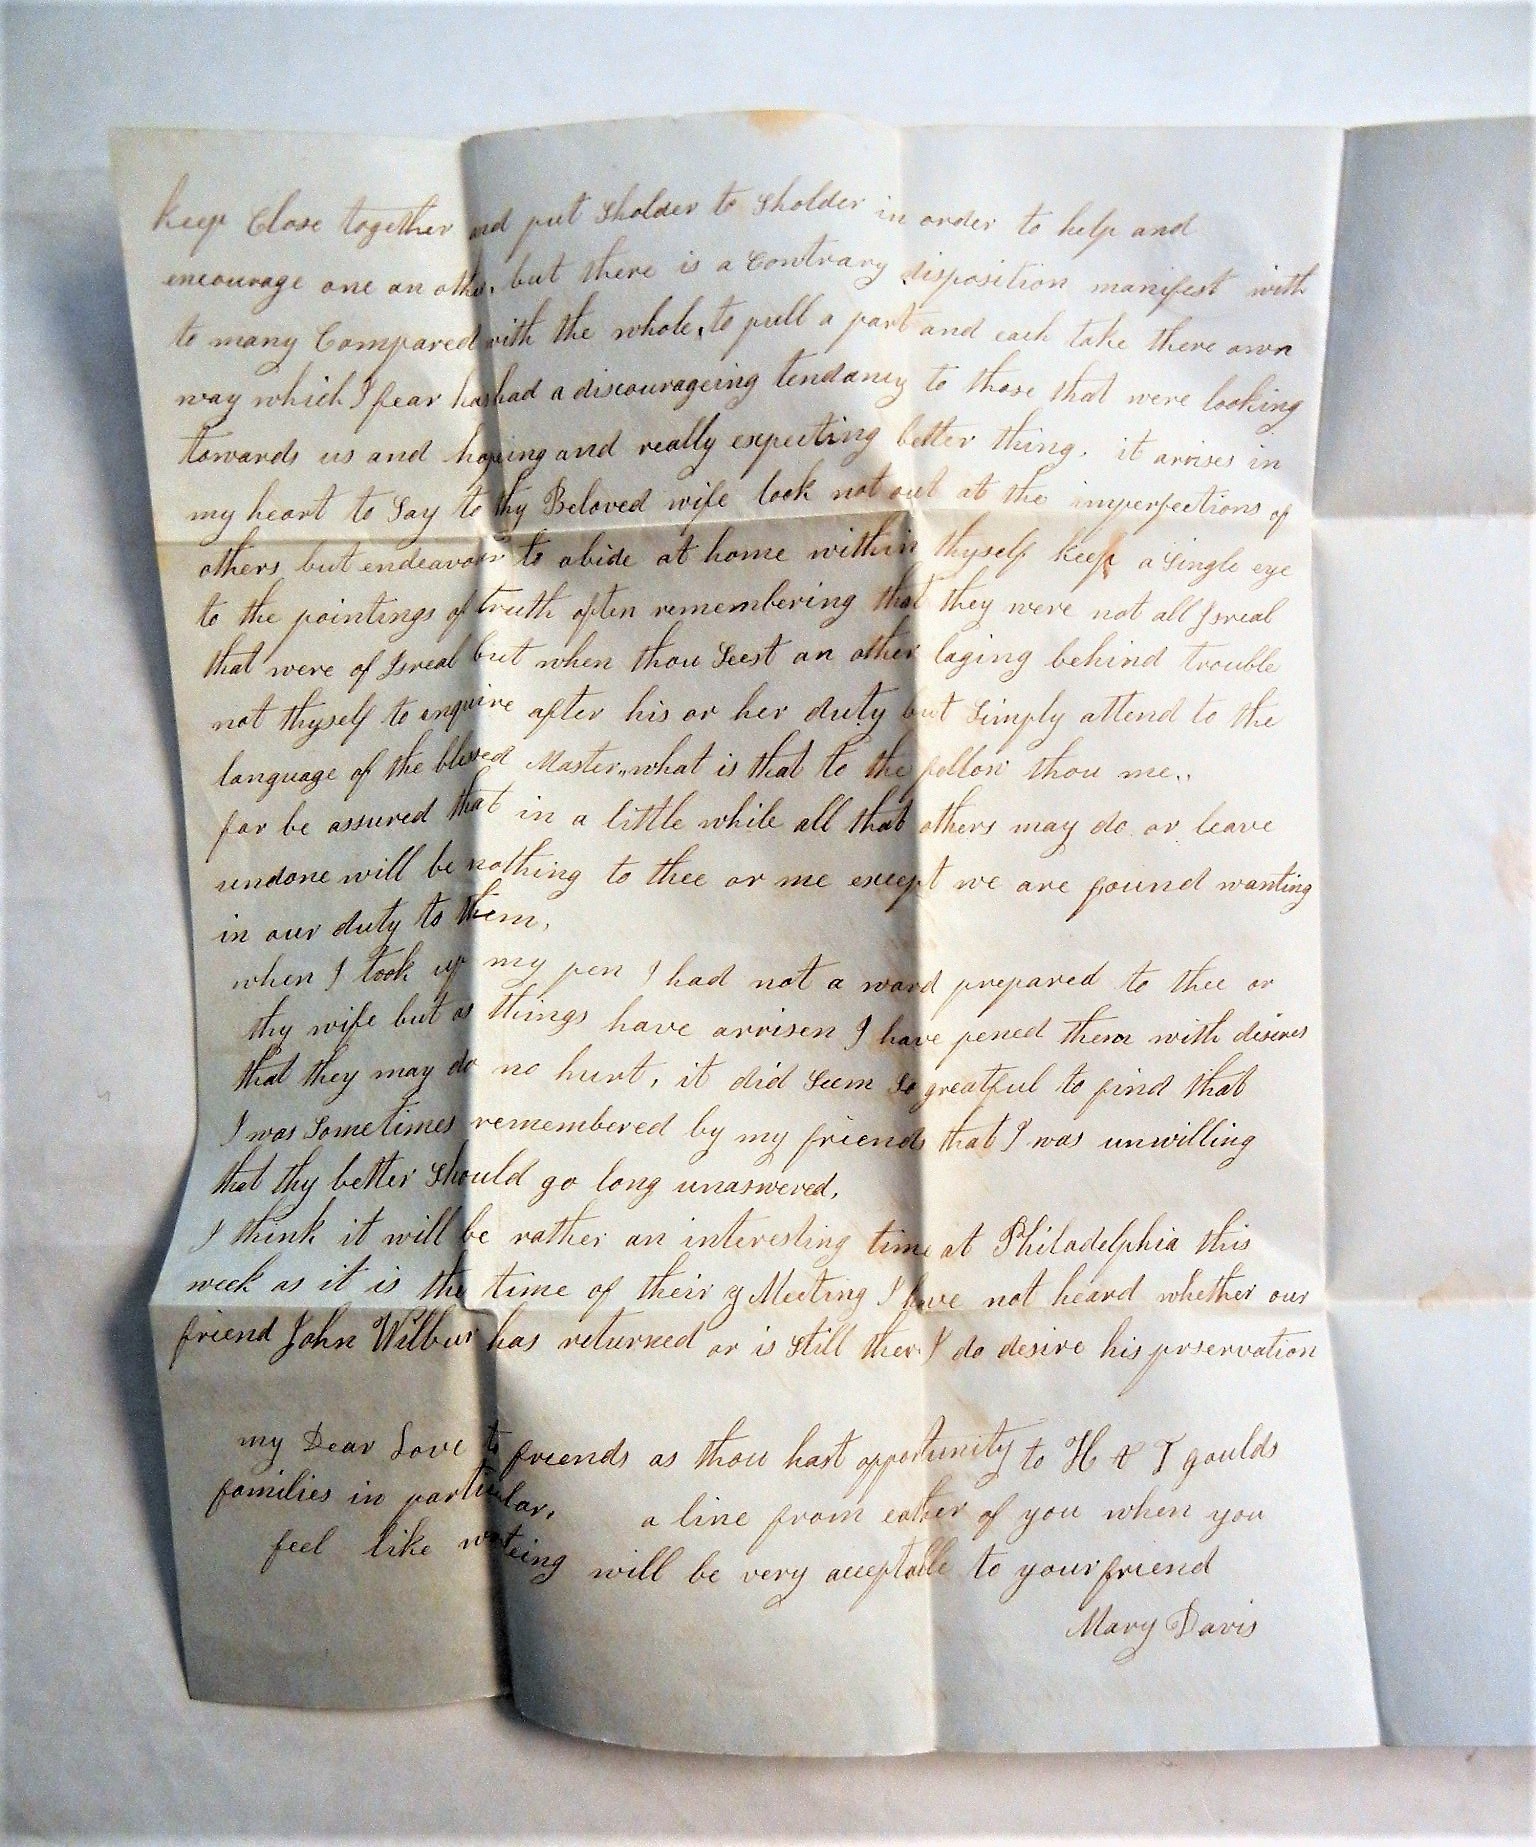 keep Close together and put Sholder to Sholder in order to help and
encourage one an other, but there is a Contrary disposition manifest with
to many Compared with the whole, to pull a part and each take there own
way which I fear has had a discourageing tendancy to those that were looking
towards us and hopeing and really expecting better thing. it arises in
my heart to Say to thy Beloved wife look not out at the imperfections of
others but endeavour to abide at home within thyself keep a Single eye
to the pointings of truth often remembering that they were not all Isreal
that were of Isreal but when thou Seest an other laging behind trouble
not thyself to enquire after his or her duty but Simply attend to the
language of the blessed Master,, what is that to the follow thou me,,
for be assured that in a little while all that others may do or leave
undone will be nothing to thee or me except we are found wanting
in our duty to them,
when I took up my pen I had not a word prepared to thee or
thy wife but as things have arrisen I have pened them with disires
that they may do no hurt, it did Seem So greatful to find that
I was Sometimes remembered by my friends that I was unwilling
that thy better Should go long unaswered,
I think it will be rather an interesting time at Philadelphia this
week as it is the time of their y Meeting I have not heard whether our
friend John Wilbur has returned or is Still there I do desire his prservation
my Dear Love to friends as thou hast opportunity to H & T goulds
families in particular, a line from eather of you when you
feel like writeing will be very acceptable to your friend
Mary Davis